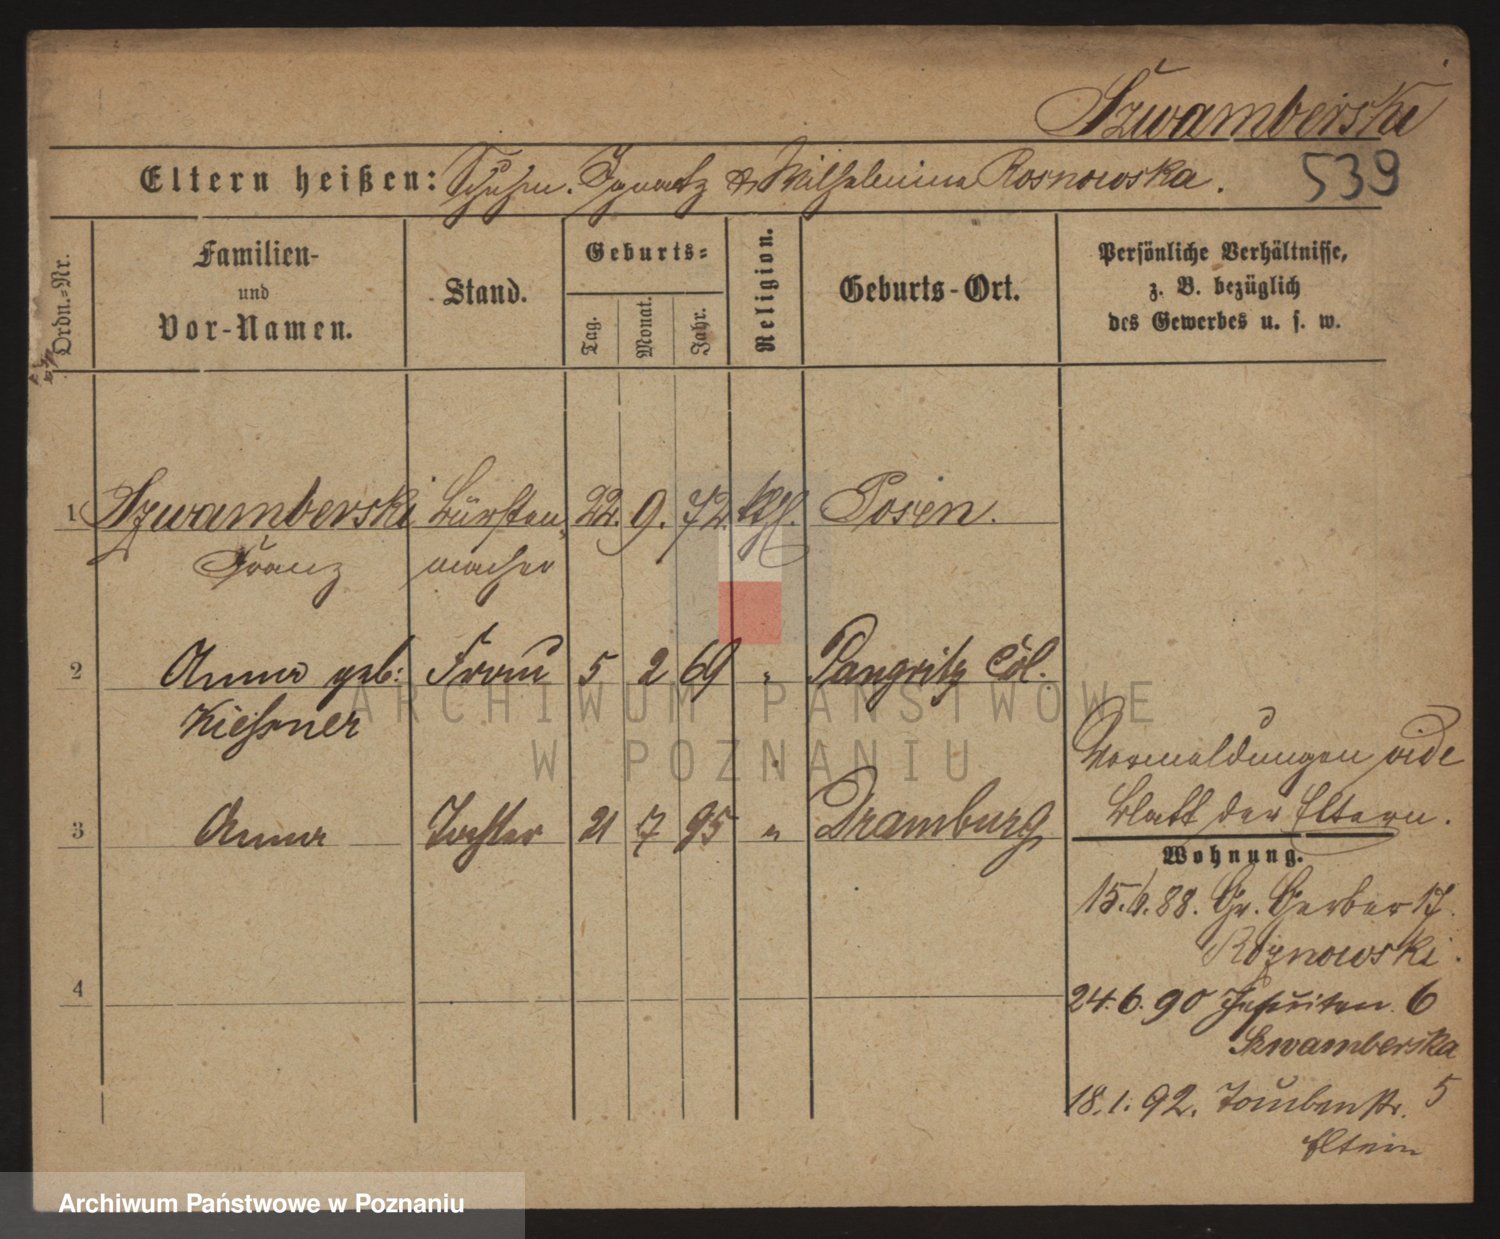 Szwamberski
Eltern heißen: Schuhm. Ignatz & Wilhelmina Rosnowska.
539
Ordn.=Nr.
Familien-
und
Vor-Namen.
Stand.
Geburts=
Tag.
Monat.
Jahr.
Religion.
Geburts-Ort.
Persönliche Verhältnisse,
z. B. bezüglich
des Gewerbes u. s. w.
1 Szwamberski Bürsten 22. 9. 72. kth. Posen.
Franz macher
2 Anna geb: Frau 5 2 69 " Pangritz Col.
Kiessner
3 Anna Tochter 21 7 95 " Dramburg
4
Vormeldungen vide
Blatt der Eltern.
Wohnung.
15.9.88. Gr. Gerber 17.
Roznowski.
24.6.90 Jesuiten 6
Szwamberska
18.1.92. Taubenstr. 5
Eltern
ARCHIWUM PAŃSTWOWE
W POZNANIU
Archiwum Państwowe w Poznaniu